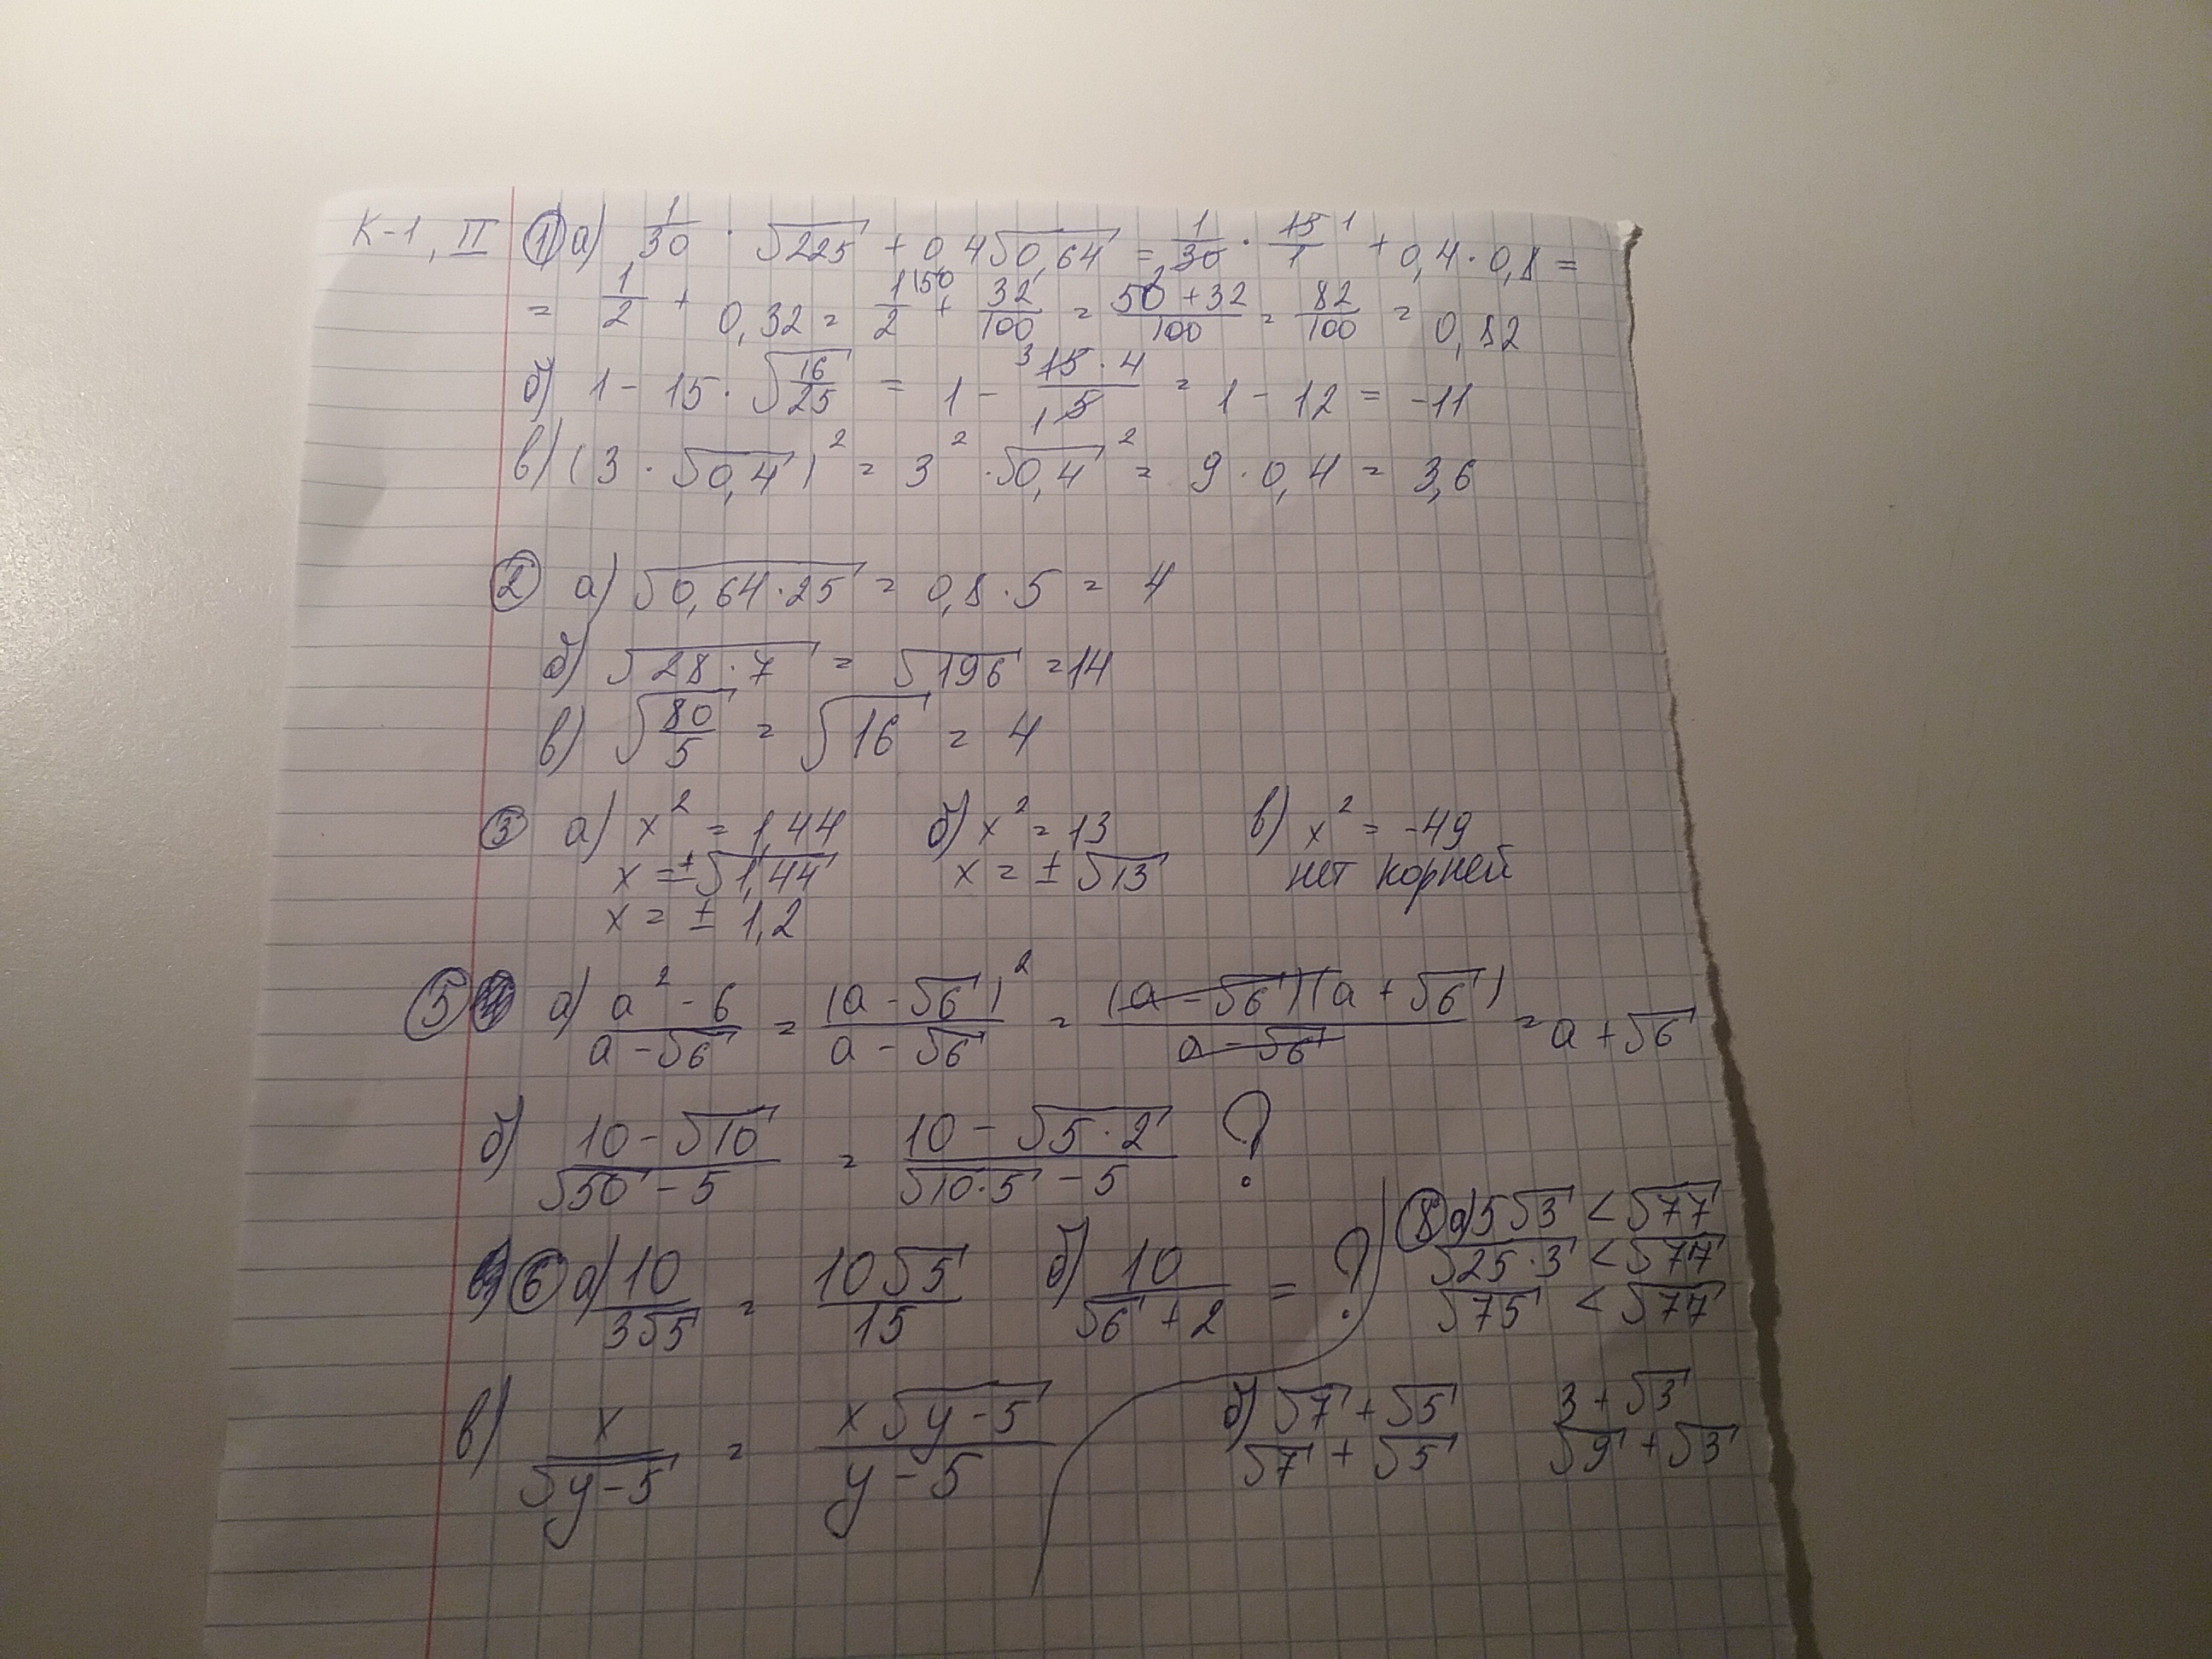 К-1, II ① а) 1/30 · √225 + 0,4√0,64 = 1/30 · 15/1 + 0,4 · 0,8 =
= 1/2 + 0,32 = 1/2 + 32/100 = (50 + 32)/100 = 82/100 = 0,82
б) 1 - 15 · √(16/25) = 1 - (15 · 4)/5 = 1 - 12 = -11
в) (3 · √0,4)² = 3² · √0,4² = 9 · 0,4 = 3,6
② а) √(0,64 · 25) = 0,8 · 5 = 4
б) √(28 · 7) = √196 = 14
в) √(80/5) = √16 = 4
③ а) x² = 1,44 б) x² = 13 в) x² = -49
x = ±√1,44 x = ±√13 нет корней
x = ± 1,2
⑤ а) (a² - 6)/(a - √6) = (a - √6)²/(a - √6) = (a - √6)(a + √6)/(a - √6) = a + √6
б) (10 - √10)/(√50 - 5) = (10 - √(5 · 2))/(√(10 · 5) - 5) ?
⑥ а) 10/(3√5) = 10√5/15 б) 10/(√6 + 2) = ?
в) x/√(y - 5) = x√(y - 5)/(y - 5)
⑧ а) 5√3 < √77
√(25 · 3) < √77
√75 < √77
б) √7 + √5 3 + √3
√7 + √5 √9 + √3